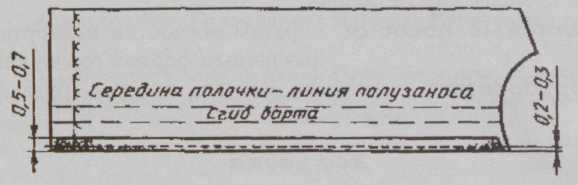 0,5-0,7
Середина полочки-линия полузаноса
Сгиб борта
0,2-0,3